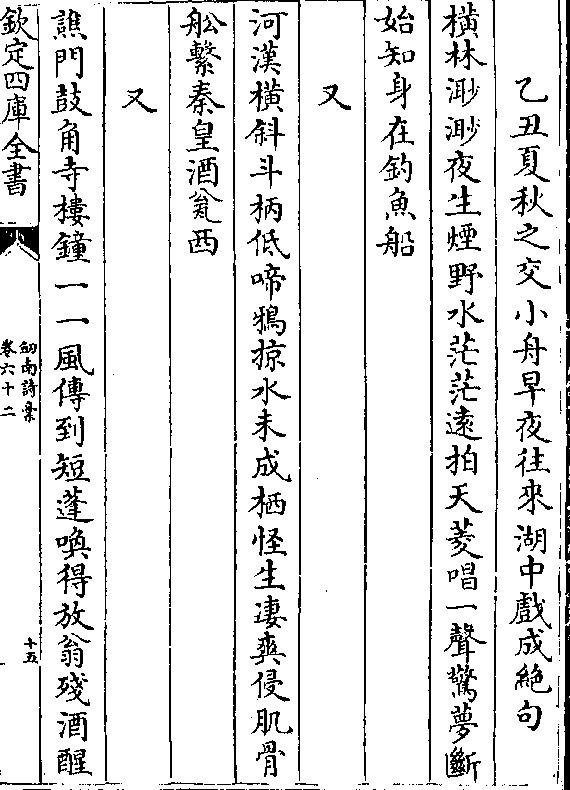 乙丑夏秋之交小舟早夜往來湖中戲成絶句
橫林渺渺夜生煙野水茫茫遠拍天菱唱一聲驚夢斷
始知身在釣魚船
又
河漢橫斜斗柄低啼鴉掠水未成栖怪生凄爽侵肌骨
舩繫秦皇酒瓮西
又
譙門鼓角寺樓鐘一一風傳到短蓬喚得放翁殘酒醒
欽定四庫全書
劔南詩稾
卷六十二
十五